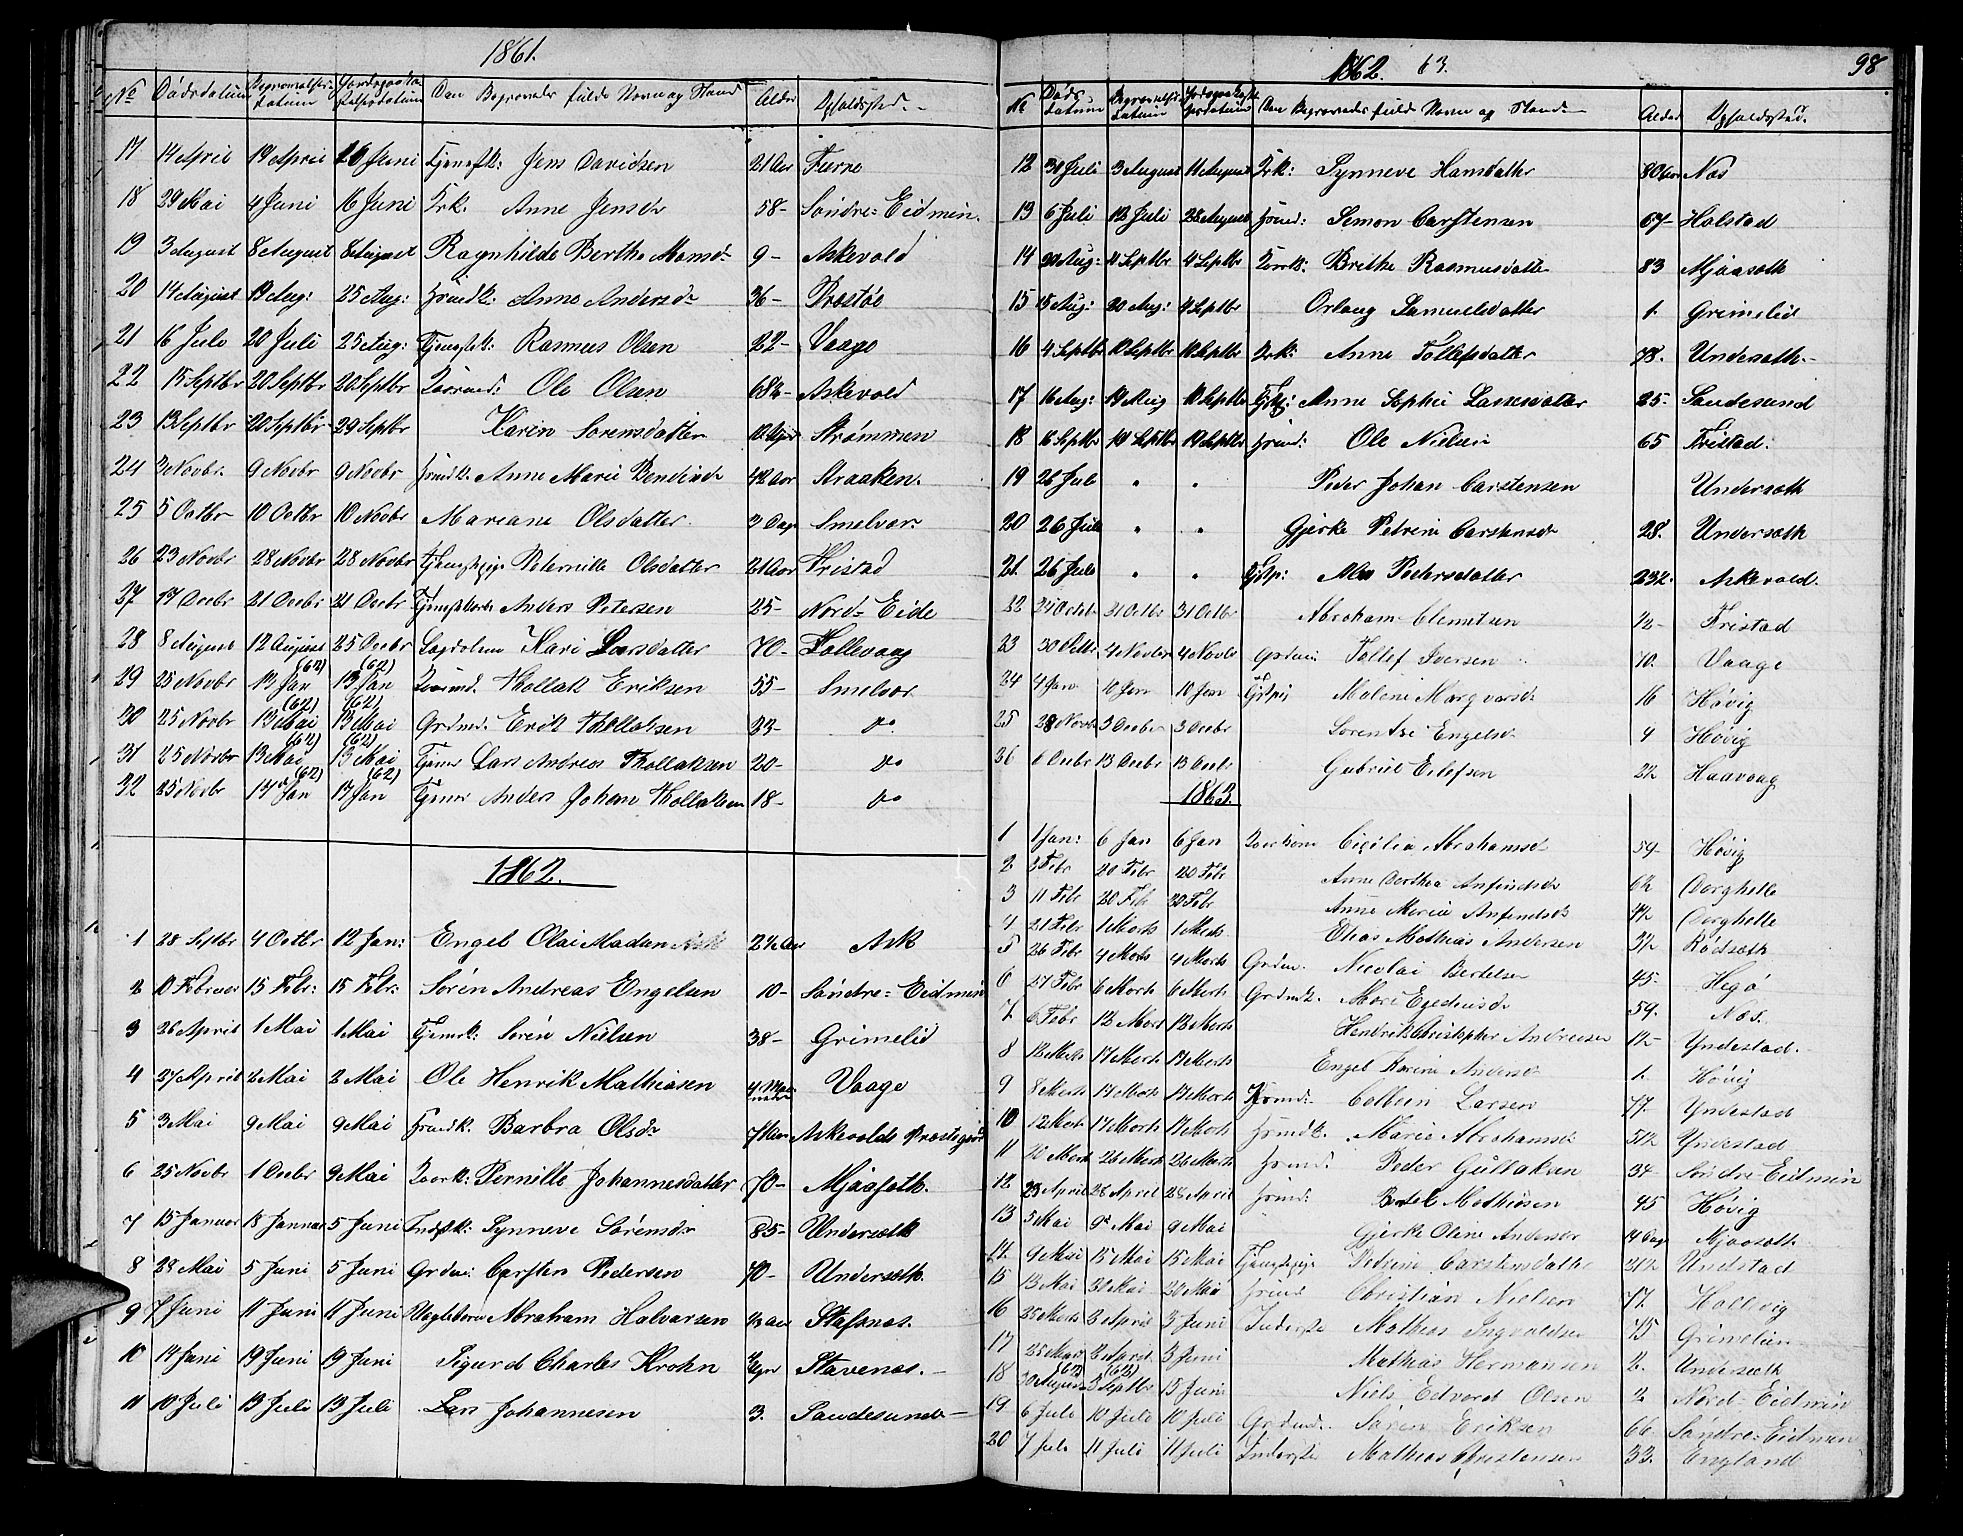 1861.
No Dödsdatum Begravelsesdatum Jordpaakastelsesdatum Den Begravedes fulde Navn og Stand Alder Opholdssted.
17 14 April 19 April 16 Juni Tjenestk: Jens Davidsen 21 Aar Furre
18 29 Mai 4 Juni 16 Juni Jens Anne Jensdr 58- Söndre-Eidmin.
19 3 August 8 August 8 August Ragnhilde Berthe Monsdr 9- Askevold
20 14 August 19 Aug: 25 Aug: Anne Andersdr 36- Prestöe
21 16 Juli 20 Juli 25 Aug: Tjenestk: Rasmus Olsen 22- Vaage
22 15 Septbr 20 Septbr 20 Septbr Ole Olsen 68½- Askevold
23 13 Septbr 20 Septbr 29 Septbr Karin Sorensdatter Strømmen
24 2 Novbr. 9 Novbr 9 Novbr Anne Marie Bendixdr 42 Aar Straaken.
25 5 Octbr 10 Octbr 10 Novbr Mariane Olsdatter 3 Dage Smelvær
26 23 Novbr 28 Novbr 28 Novbr Tjenestpige Peternille Olsdatter 21 Aar Fristad
27 17 Decbr 21 Decbr 21 Decbr Anders Petersen 25- Nord-Eide
28 8 August 12 August 25 Decbr Kari Larsdatter 70- Hollevaag
29 25 Novbr 13 Jan (62) 13 Jan (62) Thollak Eriksen 55- Smelvær
30 25 Novbr 13 Mai (62) 13 Mai (62) Grdmd. Erik Thollaksen 23- do
31 25 Novbr 13 Mai (62) 13 Mai (62) Tjener Lars Andreas Thollaksen 20- do
32 25 Novbr 13 Jan (62) 13 Jan (62) Tjener Anders Johan Thollaksen 18- do
1862.
1 28 Septbr 4 Octbr 12 Jan: Engel Olai Madsen 2½ Aar Ask
2 10 Februar 15 Febr: 15 Febr: Sören Andreas Engelsen 10- Söndre-Eidmin
3 26 April 1 Mai 1 Mai Sören Nielsen 38- Grimelid
4 27 April 2 Mai 2 Mai Ole Henrik Mathiasen 4 Maaneder Vaage
5 3 Mai 9 Mai 9 Mai Barbra Olsdr Askevolds Prestegaard
6 25 Novbr 1 Decbr 9 Mai Pernille Johannesdatter 70- Mjaaseth.
7 15 Januar 18 Januar 5 Juni Synneve Sörensdr 85- Underseth
8 28 Mai 5 Juni 5 Juni Grdmd: Carsten Pedersen 70- Underseth.
9 7 Juni 11 Juni 11 Juni Abraham Halvorsen Stafsnes.
10 14 Juni 19 Juni 19 Juni Sigurd Charles Krohn Stavenes.-
11 10 Juli 13 Juli 13 Juli Lars Johannesen 3. Sandesund-
1862. 63. 98
No Döds Datum Begravelses Datum Jordpaakastelsesdatum Den Begravedes fulde Navn og Stand Alder Opholdssted.
12 31 Juli 3 August 11 August Synneve Hansdatter 80 Aar Nes
13 6 Juli 12 Juli 28 August Simon Carstensen 67- Holstad
14 30 Aug: 4 Septbr 4 Septbr Brithe Rasmusdatter 83 Mjaaseth
15 15 Aug: 20 Aug: 4 Septbr Orlaug Samuelsdatter 1. Grimelid
16 4 Septbr 10 Septbr 10 Septbr Anne Tollefsdatter 78. Underseth.-
17 16 Aug: 19 Aug 10 Septbr Anne Sophie Lassesdatter 25- Sandesund
18 6 Septbr 10 Septbr 10 Septbr Ole Nielsen 65 Fristad.
19 26 Juli " " Peder Johan Carstensen Underseth
20 26 Juli " " Gjerke Petrine Carstensdr 28. Underseth
21. 26 Juli " " Pedersdatter 23½. Askevold.
22 25 Octbr 31 Octbr 31 Octbr Abraham Clemetsen ½- Fristad
23 30 Octbr 4 Novbr 4 Novbr Tollef Iversen 70. Vaage
24 4 Jan 10 Jan 10 Jan Malene Margvarsdr 16 Høvig
25 28 Novbr 3 Decbr 3 Decbr Sorentse Engelsdr 4 Høvig
26 6 Decbr 13 Decbr 13 Decbr Gabriel Eilefsen 22 Haavaag
1863.
1 1 Jan: 6 Jan 6 Jan Cicilia Abrahamsdr 59- Høvig
2 3 Febr 20 Febr 20 Febr Anne Dorthea Anfindsdr 6½ Dorghelle
3 11 Febr 20 Febr 20 Febr Anne Maria Anfindsdr 4½ Dorghelle
4 21 Febr 1 Marts 1 Marts Elias Mathias Andersen 3½ Rödseth
5 26 Febr 4 Marts 4 Marts Grdm. Nicolai Bertelsen 45- Hegö
6 27 Febr 6 Marts 6 Marts Mari Egedeusdr 59. Nes.
7. 6 Febr 13 Marts 13 Marts Hendrik Christopher Andreasen 1½- Yndestad.
8 12 Marts 17 Marts 17 Marts Engel Karine Andersdr 1. Høvig
9 8 Marts 17 Marts 17 Marts Colbein Larsen 77. Yndestad
10 12 Marts 17 Marts 17 Marts Marie Abrahamsdr 51½ Yndestad
11 20 Marts 26 Marts 26 Marts Peder Gullaksen 34- Söndre-Eidmin
12 23 April 28 April 28 April Mathiasen 45 Høvig
13 5 Mai 9 Mai 9 Mai Gjerke Oline Andersdr 14 Dage Mjaaseth.
14. 9 Mai 15 Mai 15 Mai Tjenestpige Petrine Carstensdatter 21½ Undstad
15 13 Mai 20 Mai 20 Mai Christian Nielsen 77. Hollevig
16 25 Marts 2 April 3 Juni Inderste Mathias Ingvaldsen 75 Grimelien
17 25 Marts 2 April 3 Juni Mathias Hermansen 2. Underseth
18 30 August (62) 5 Septbr (62) 15 Juni Niels Edvard Olsen 2 Nord-Eidmin
19 6 Juli 10 Juli 10 Juli Grdmd. Sören Eriksen 66. Söndre-Eidmin
20 7 Juli 11 Juli 11 Juli Inderste Mathias Christensen 33. England